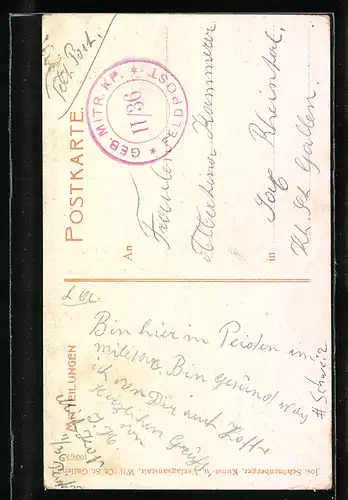 Feld Post.
POSTKARTE.
GEB. MITR. KP. * FELDPOST *
II/36
An Fräulein
Albertina Kammerer
in Sax Rheintal.
Kt. St. Gallen.
# Schweiz
MITTEILUNGEN
L. A.
Bin hier in Peiden im
militär. Bin gesund was
ich von Dir auch hoffe
Herzlichen Gruss
von
Jos. Schönenberger, Kunst- u. Verlagsanstalt, Wil (Ct. St. Gallen)